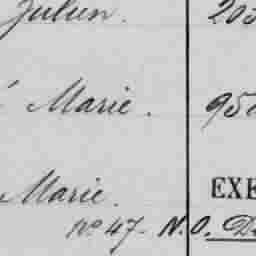 Julien. 205
Marie. 950
Marie. EXE
No 47 - N.O. D